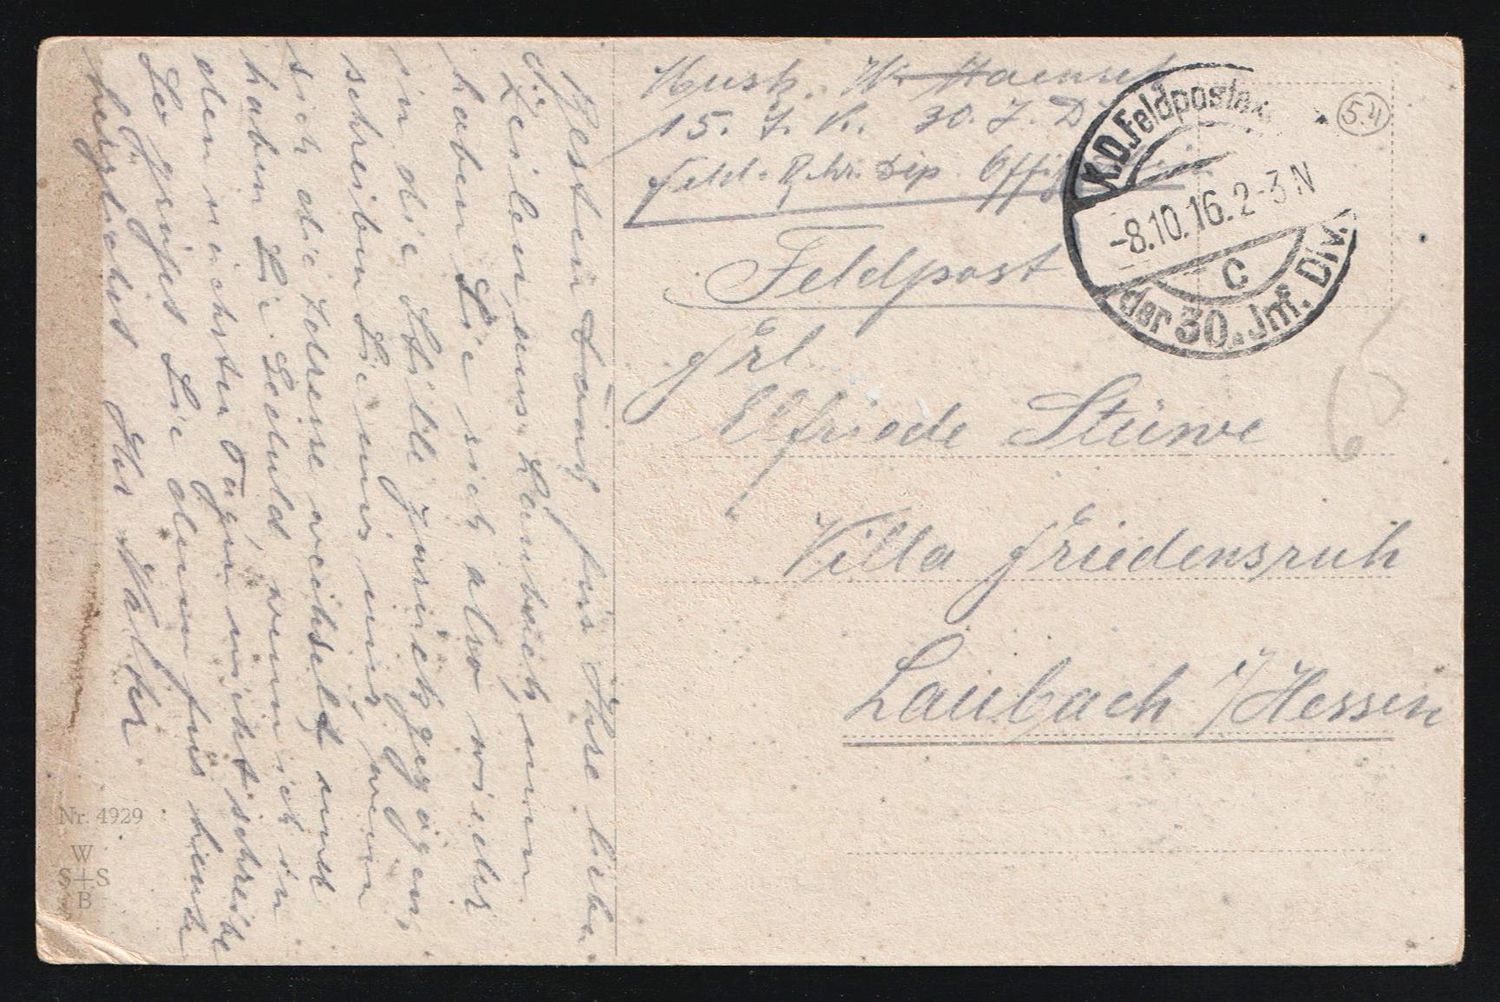 Musk. W. Haensel
15. J. R. 30. J. D.
Feld-Rekr. Dep.
Feldpost
Frl.
Elfriede Stüwe
Villa Friedensruh
Laubach i/Hessen
K.D. Feldpostex
-8.10.16. 2-3 N
C
der 30. Jnf. Div.
54
Besten Dank für Ihre lieben
Zeilen aus Laubach, nun
haben Sie sich also wieder
in die Stille zurückgezogen,
schreiben Sie mir, wenn
sich die Adresse wechselt und
haben Sie Geduld, wenn ich in
den nächsten Tagen nicht schreibe
So grüßt Sie denn für heute
herzlichst Ihr Walter
Nr. 4929
W
S+S
B